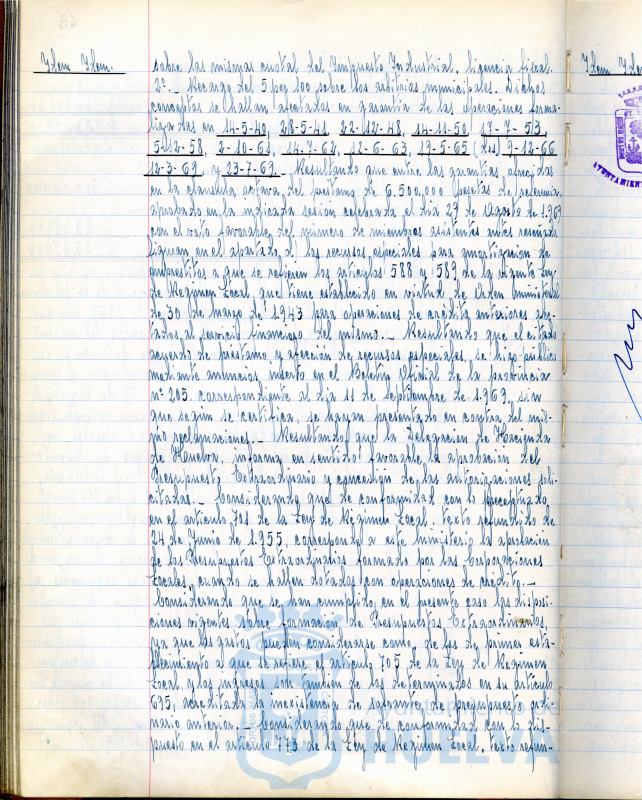 Idem Idem.
sobre las mismas cuotas del Impuesto Industrial, licencia fiscal.
2º.- Recargo del 5 por 100 sobre los arbitrios municipales. Dichos
conceptos se hallan afectados en garantia de las operaciones forma-
lizadas en 14-5-40, 28-5-41, 22-12-48, 14-11-50, 17-7-53,
5-12-58, 2-10-61, 14-7-62, 12-6-63, 19-5-65 (dos) 9-12-66
12-3-69 y 23-7-69.- Resultando que entre las garantias ofrecidas
en la clausula octava, del prestamo de 6.500.000 pesetas de referencia
aprobado en la indicada sesion celebrada el dia 29 de Agosto de 1.969
con el voto favorable del número de miembros asistentes antes reseñado
figuran, en el apartado d) los recursos especiales para amortizacion de
emprestitos a que se refieren los articulos 588 y 589 de la vigente Ley
de Regimen Local, que tiene establecido en virtud de Orden ministerial
de 30 de marzo de 1943 para operaciones de crédito anteriores afec-
tados al servicio financiero del mismo.- Resultando que el citado
acuerdo de préstamo y afección de recursos especiales, se hizo público
mediante anuncios inserto en el Boletin Oficial de la provincia
nº 205. correspondiente al dia 11 de septiembre de 1.969, sin
que según se certifica, se hayan presentado en contra del mis-
mo reclamaciones.- Resultando que la Delegacion de Hacienda
de Huelva, informa en sentido favorable la aprobación del
Presupuesto Extraordinario y concesión de las autorizaciones soli-
citadas.- Considerando que de conformidad con lo preceptuado
en el articulo 701 de la Ley de Regimen Local, texto refundido de
24 de Junio de 1.955, corresponde a este Ministerio la aprobación
de los Presupuestos Extraordinarios formado por las Corporaciones
Locales, cuando se hallen dotados con operaciones de crédito.-
Considerando que se han cumplido, en el presente caso las disposi-
ciones vigentes sobre formación de Presupuestos Extraordinarios,
ya que los gastos pueden considerarse como de los de primer esta-
blecimiento a que se refiere el articulo 705 de la Ley de Regimen
Local, y los ingresos son tambien de los determinados en su articulo
695, acreditada la inexistencia de sobrante de presupuesto ordi-
nario anterior.- Considerando que de conformidad con lo dis-
puesto en el articulo 773 de la Ley de Regimen Local, texto refun-
Idem Idem
AYUNTAMIEN
HUELVA